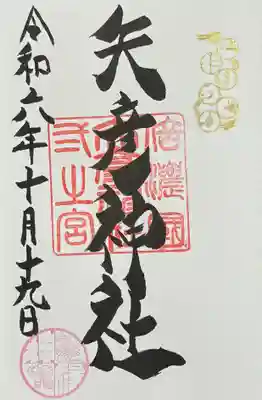 矢彦神社
信濃國
弐之宮
令和六年十月十九日